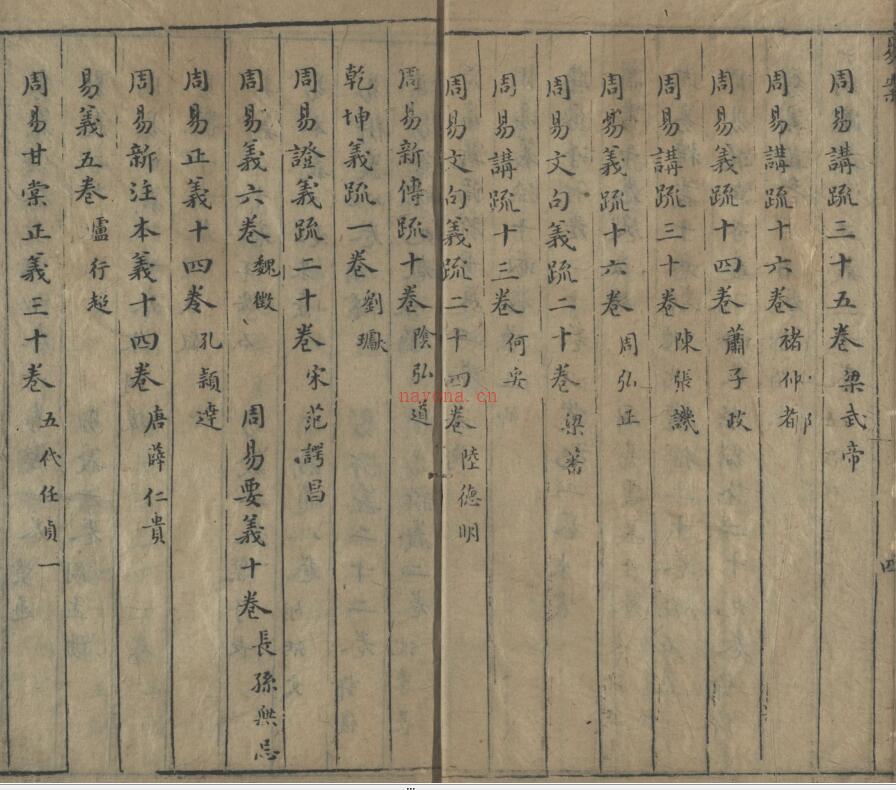 周易講疏三十五卷 梁武帝
周易講疏十六卷 褚仲都
周易義疏十四卷 蕭子政
周易講疏三十卷 陳張譏
周易義疏十六卷 周弘正
周易文句義疏二十卷 梁蕃
周易講疏十三卷 何妥
周易文句義疏二十四卷 陸德明
周易新傳疏十卷 陰弘道
乾坤義疏一卷 劉瓛
周易證義疏二十卷 宋范諤昌
周易義六卷 魏徵 周易要義十卷 長孫無忌
周易正義十四卷 孔穎達
周易新注本義十四卷 唐薛仁貴
易義五卷 盧行超
周易甘棠正義三十卷 五代任貞一
四
nayona.cn